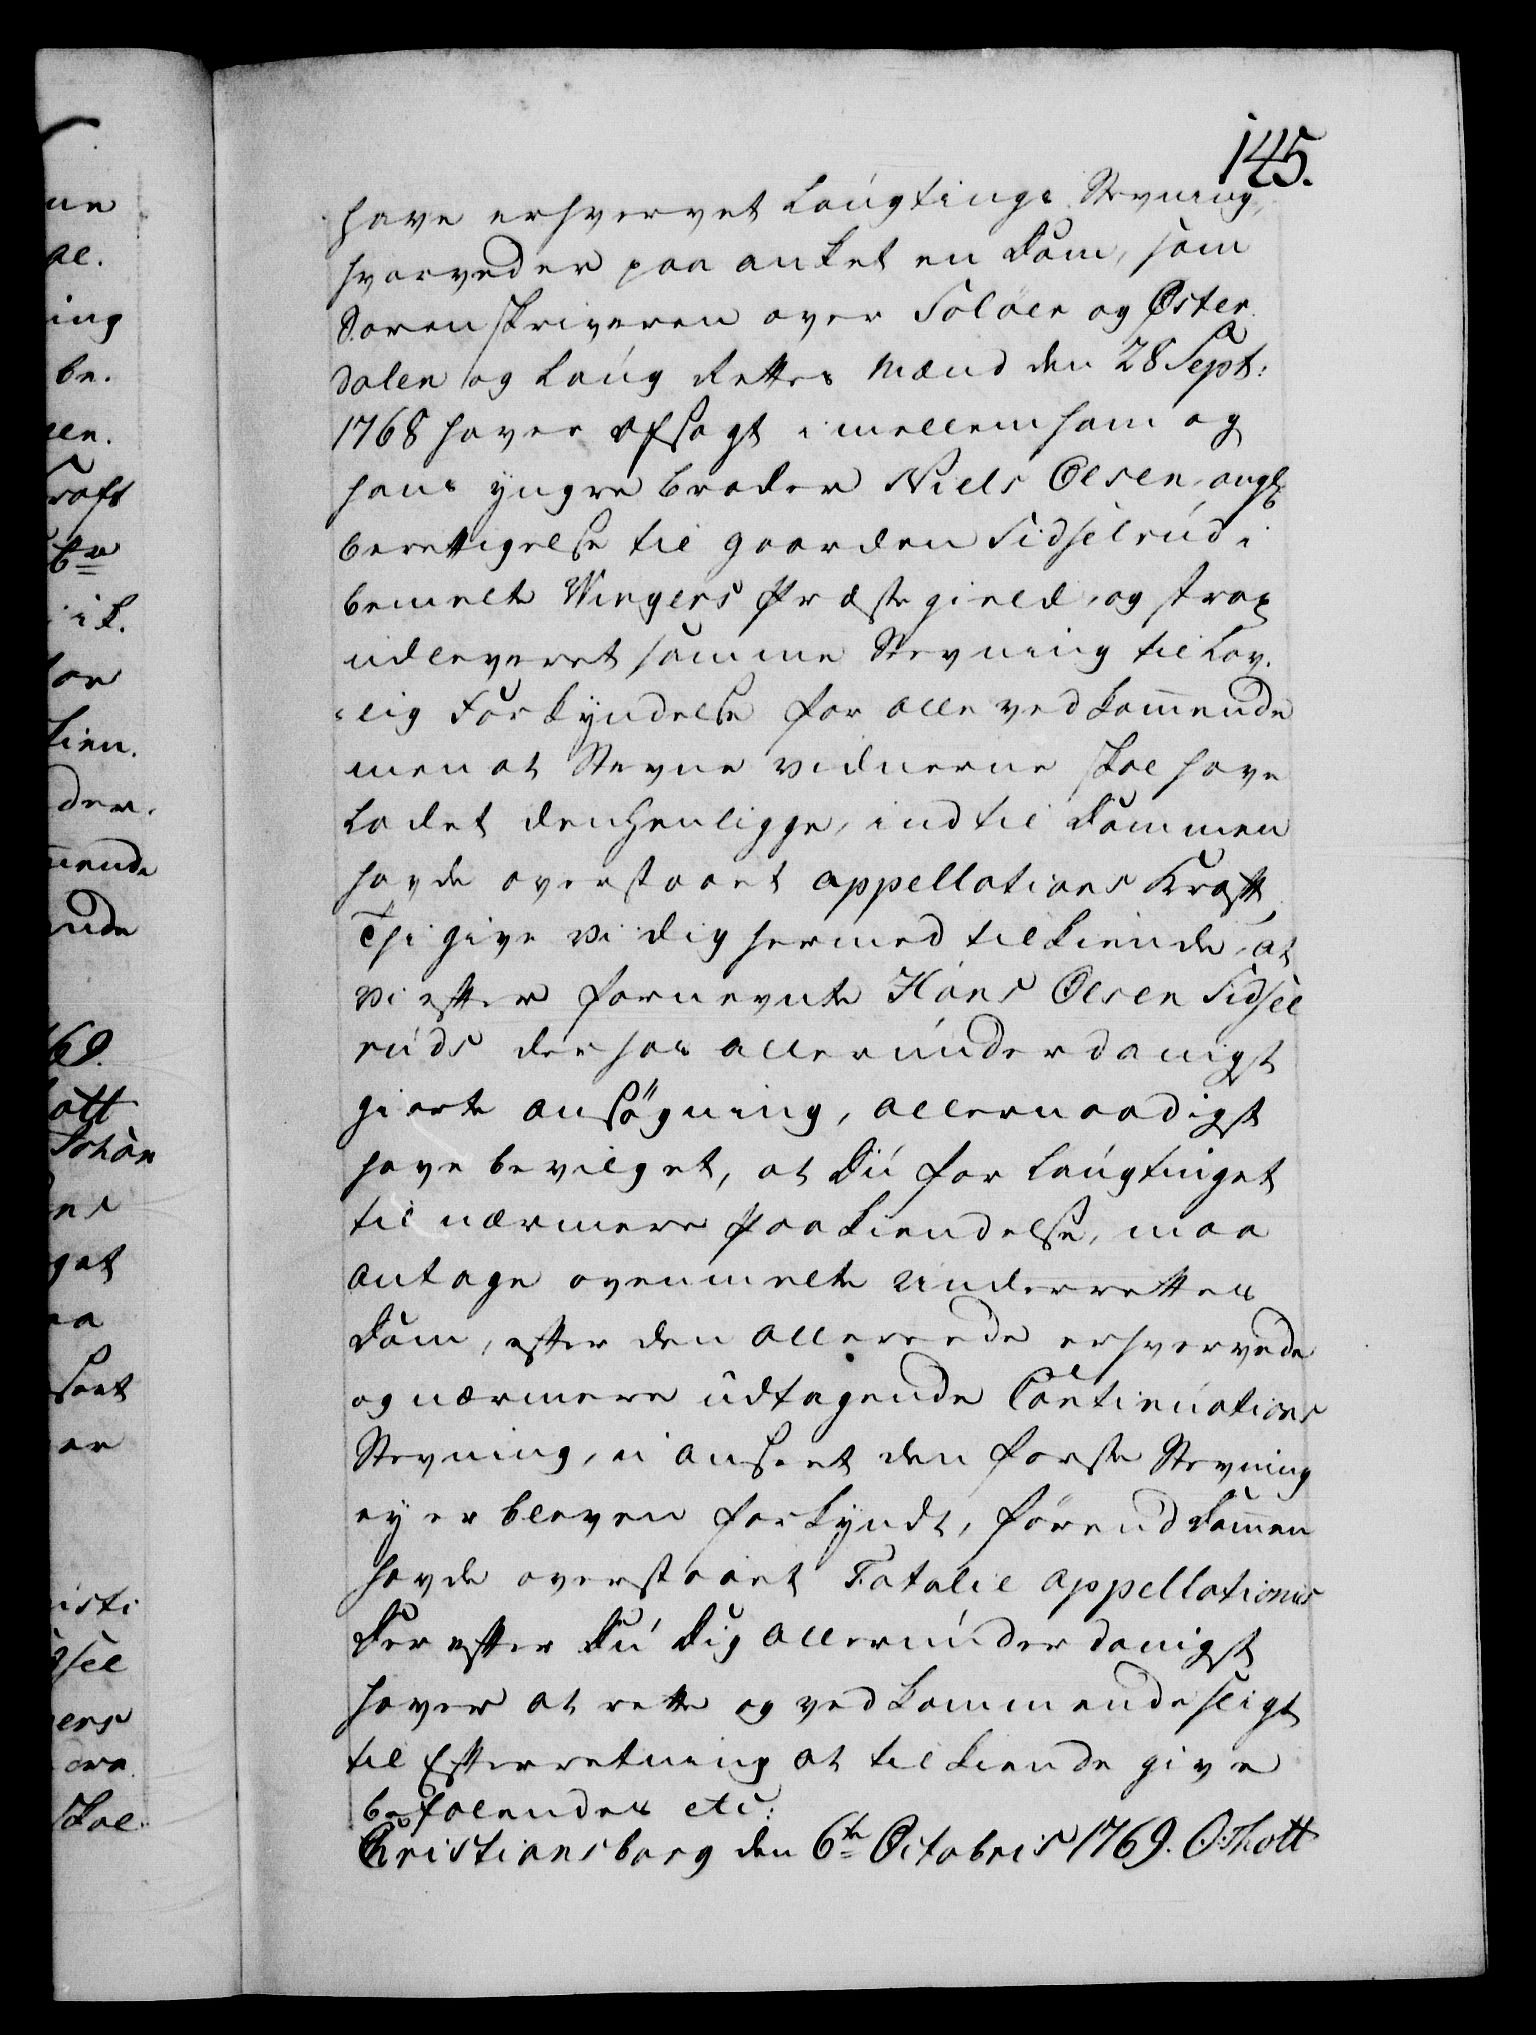 145.
have erhvervet Laugtings Stevning,
hvorved er paa anket en Dom, som
Sorenskriveren over Soløer og Øster
dalen og Laug Rettes Mænd den 28 Sept:
1768 haver afsagt imellem ham og
hans yngre Broder Niels Olsen, ang
berettigelse til Gaarden Sidselrud i
bemelte Wingers Præstegield, og strax
udleveret samme Stevning til Lov-
-lig Forkyndelse for alle vedkommende
men at Stevne vidnerne skal have
Ladet den henligge, indtil Dommen
havde overstaaet appellations Kraft,
Thi give Vi dig hermed tilkiende, at
Vi efter fornevnte Hans Olsen Sidsel
ruds derhos allerunderdanigst
giorte ansøgning, allernaadigst
have bevilget, at Du for Laugtinget
til nærmere Paakiendelse, maa
antage ovenmelte Underrettes
Dom, efter den allereede erhvervede
og nærmere udtagende Continuations
Stevning, u-anseet den første Stevning
ey er bleven forkyndt, førend Dommen
havde overstaaet Fatalie appellationis
Derefter Du Dig allerunderdanigst
haver at rette og vedkommende sligt
til Efterretning at tilkiende give
befalendes etc:
Christiansborg den 6te Octobris 1769. O: Thott